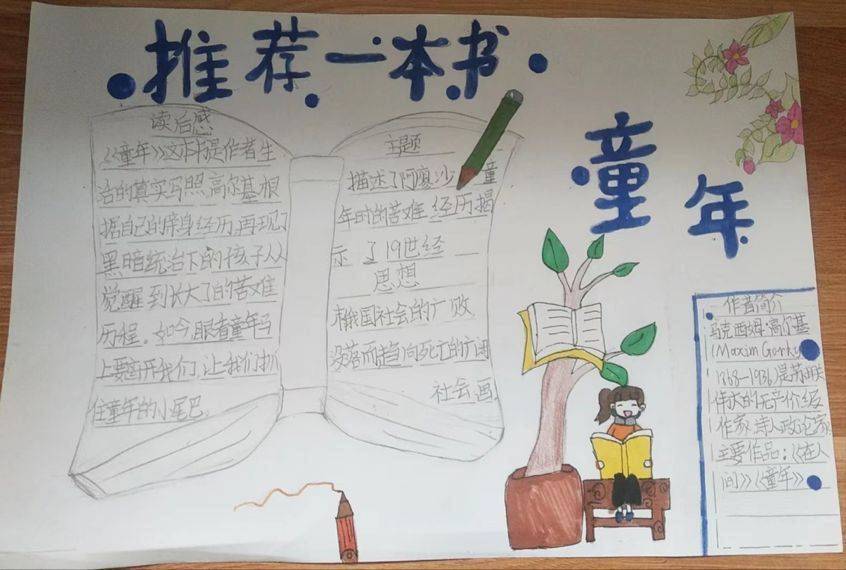 推荐一本书
童年
读后感
《童年》这本书是作者生
活的真实写照高尔基根
据自己的亲身经历,再现了
黑暗统治下的孩子从
觉醒到长大了的苦难
历程。如今,眼看童年马
上要离开我们,让我们抓
住童年的小尾巴
主题
描述了阿廖沙 童
年时的苦难 经历揭
示了19世经
思想
俄国社会的广败
没落而趋向死亡的广阔
社会画
作者简介
马克西姆·高尔基
(Maxim Gorky
1868-1936)是苏联
伟大的无产价级
作家,诗人,政论家
主要作品:《在人
间》《童年》